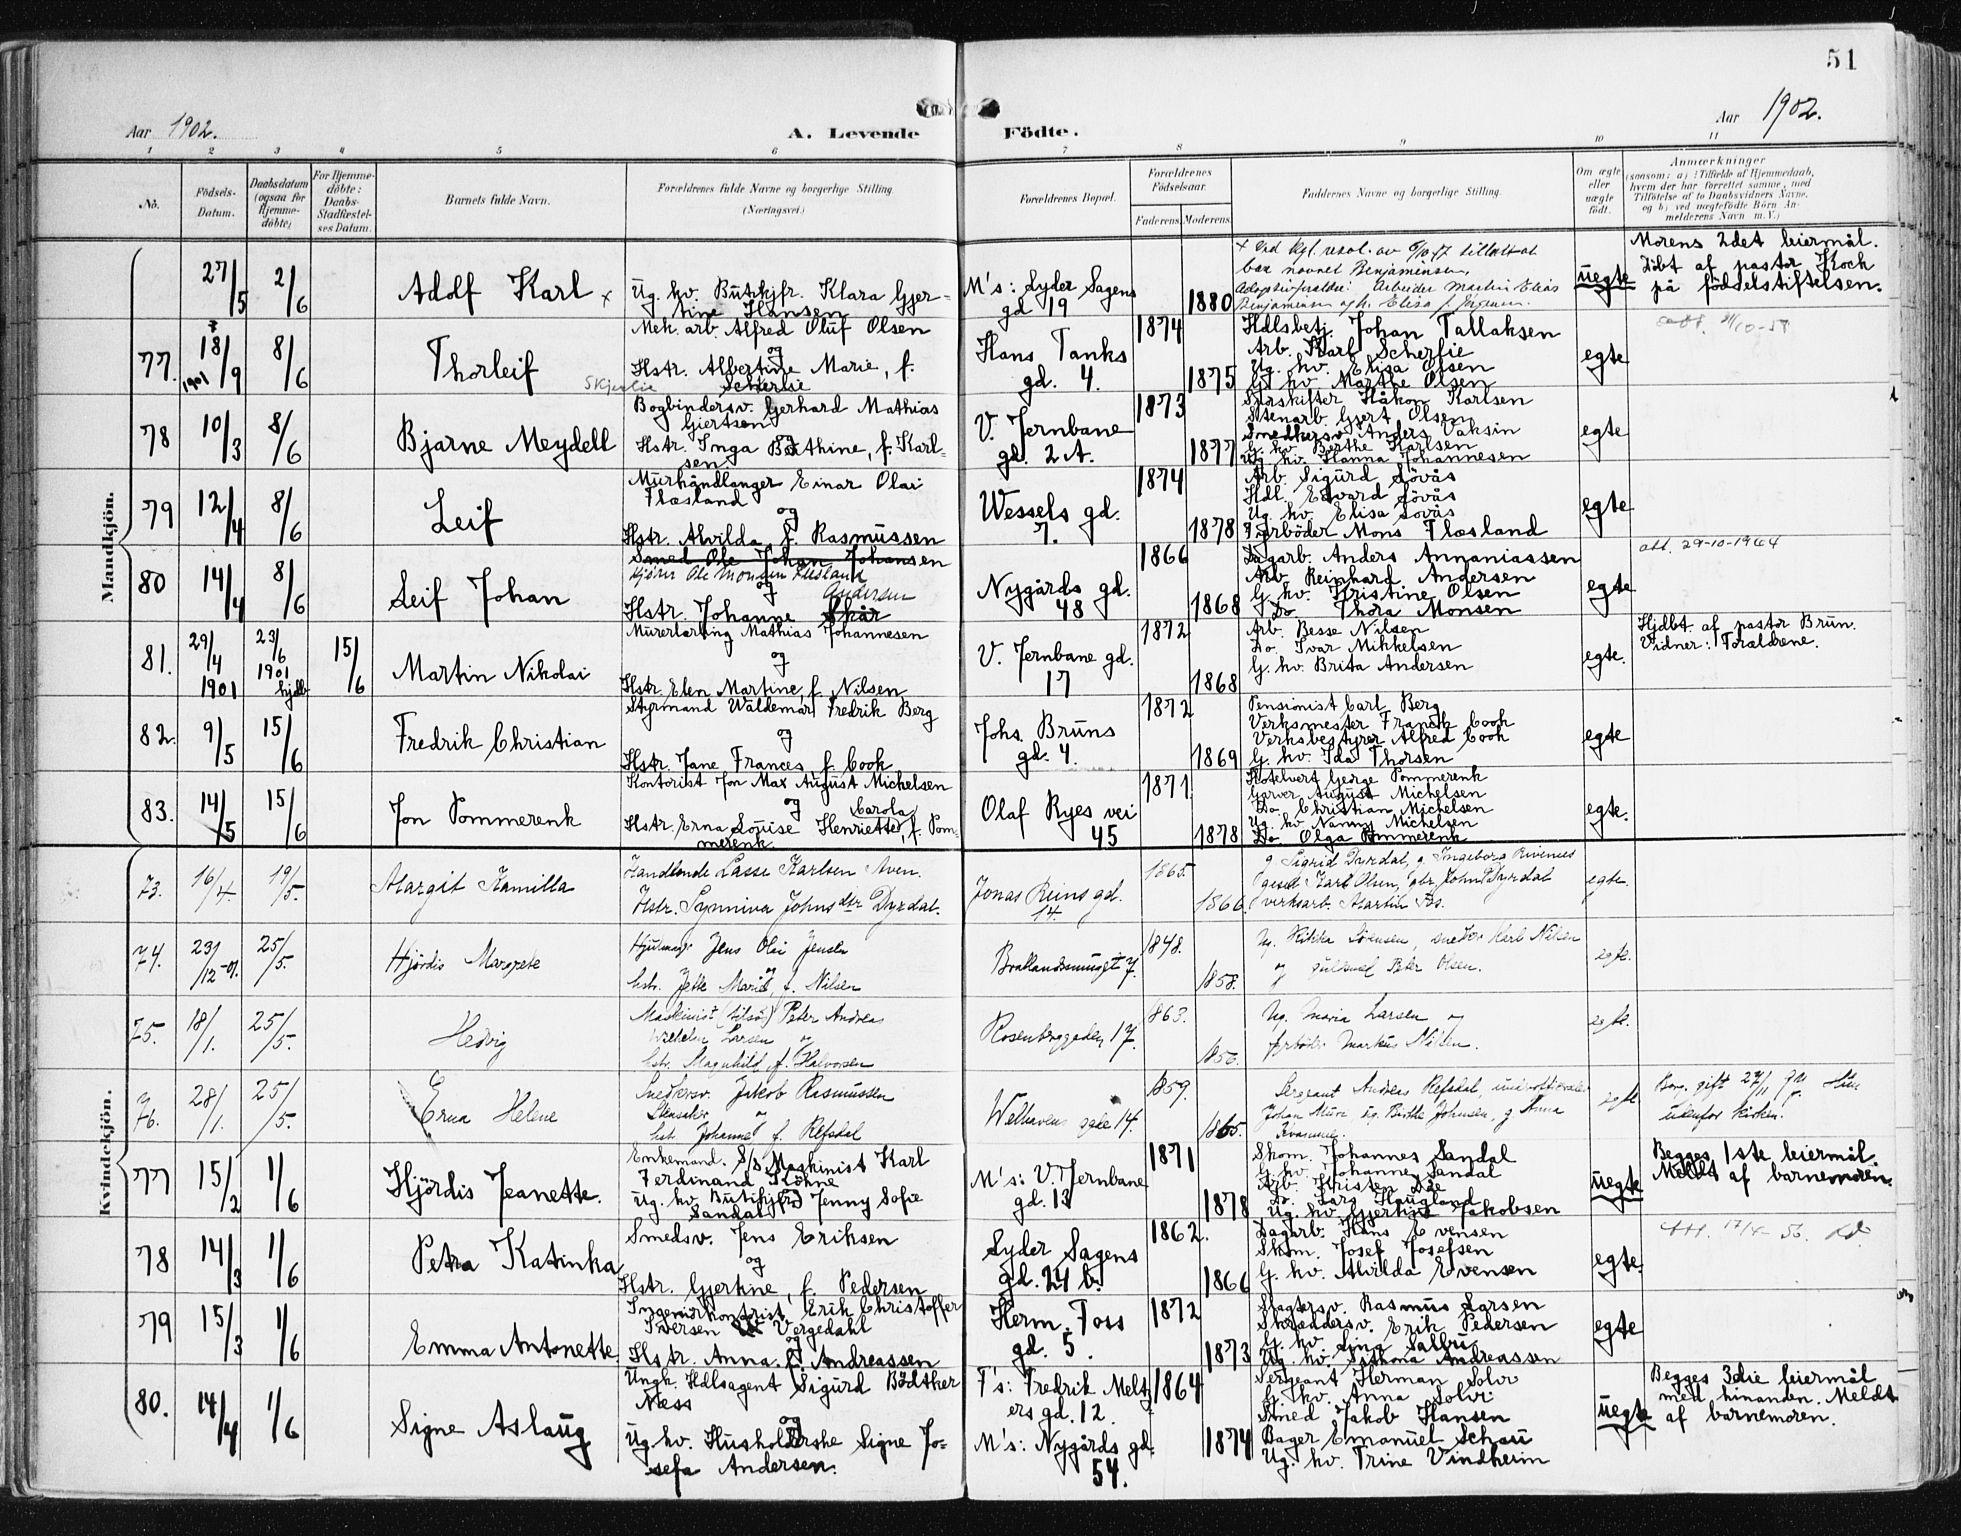 51
Aar 1902.
A. Levende Födte.
Aar 1902.
1 2 3 4 5 6 7 8 9 10 11
No.
Födsels-Datum.
Daabsdatum (ogsaa for Hjemme-döbte)
For Hjemme-döbte: Daabs-Stadfæstel-ses Datum.
Barnets fulde Navn.
Forældrenes fulde Navne og borgerlige Stilling. (Næringsvei.)
Forældrenes Bopæl.
Forældrenes Födselsaar.
Faderens. Moderens.
Faddernes Navne og borgerlige Stilling.
Om ægte eller uægte födt.
Anmærkninger
(saasom: a) i Tilfælde af Hjemmedaab, hvem der har forrettet samme, med Tilföielse af to Daabsvidners Navne, og b) ved uægtefödte Börn An-melderens Navn m. V.)
Mandkjön.
27/5 2/6
Adolf Karl x
Ug. hv. Butikjfr. Klara Gjer-
tine Hansen
M's: Lyder Sagens
gd 19
1880
x Ved kgl. resol. av 9/10 17 tillatt at
bære navnet Benjaminsen.
Adoptivforældre: Arbeider Martin Elias
Benjaminsen og h. Elisa f. Jörgensen.
uegte
Morens 2det leiermål.
Döbt af pastor Koch
på födselstiftelsen.
77. 18/9 1901 8/6
Thorleif
Mek. arb. Alfred Oluf Olsen
og
Hstr. Albertine Marie, f.
Skjerlie Scherlie
Hans Tanks
gd. 4.
1874
1875
Hdlsbetj. Johan Tallaksen
Arb. Karl Scherlie
Ug. hv. Elisa Olsen
G. hv. Marthe Olsen
egte
78 10/3 8/6
Bjarne Meydell
Bogbindersv. Gerhard Mathias
Giertsen
og
Hstr. Inga Bathine, f. Karl-
sen
V. Jernbane
gd. 2 A.
1873
1877
Sporskifter Håkon Karlsen
Stenarb. Gjert Olsen
Smedkjsv. Anders Vaksin
G. hv. Berthe Karlsen
Ug. hv. Hanna Johannesen
egte
79 12/4 8/6
Leif
Murhåndlanger Einar Olai
Flæsland
og
Hstr. Alvilda, f. Rasmussen
Wessels gd.
7.
1874
1878
Arb. Sigurd Lövås
Hdl. Edvard Lövås
Ug. hv. Elisa Lövås
Fyrböder Mons Flæsland
egte
80 14/4 8/6
Leif Johan
Smed Ole Johan Johansen
og
Andersen
Hstr. Johanne Skår
Nygårds gd.
48
1866
1868
Dagarb. Anders Annaniassen
Arb. Reinhard Andersen
G. hv. Kristine Olsen
Do Thora Monsen
egte
att. 29-10-1944
81. 29/4 1901 23/6 1901 hjdb 15/6
Martin Nikolai
Murerlærling Mathias Johannesen
og
Hstr. Elen Martine, f. Nilsen
V. Jernbane gd.
17
1872
1868
Arb. Besse Nilsen
Do. Ivar Mikkelsen
G. hv. Brita Andersen
egte.
Hjdbt. af pastor Brun.
Vidner: Forældrene.
82. 9/5 15/6
Fredrik Christian
Styrmand Waldemar Fredrik Berg
og
Hstr. Jane Frances f. Cook
Johs. Bruns
gd. 4.
1872
1869
Pensionist Carl Berg
Verksmester Franck Cook
Verksbestyrer Alfred Cook
G. hv. Ida Thorsen
egte
83. 14/5 15/6
Jon Pommerenk
Kontorist Jon Max August Michelsen
og Carola
Hstr. Erna Louise Henriette, f. Pom-
merenk
Olaf Ryes vei
45
1871
1878
Hotelvert George Pommerenk
Garver August Michelsen
Do Christian Michelsen
Ug. hv. Nanny Michelsen
Do Olga Pommerenk
egte.
Kvindekjön.
73. 16/4. 19/5.
Margit Kamilla
Handlende Lasse Karlsen Aven.
Hstr. Synniva Johnsdtr Dyrdal.
Jonas Reins gd.
14.
1865.
1866.
g. Sigrid Dyrdal, g. Ingeborg Rivenes
Karl Olsen, gbr. John Dyrdal
verksarb. Martin
egte.
74. 23/12-01. 25/5.
Hjördis Margrete
Jens Olai Jensen
og
hstr. Jette Marie, f. Nilsen
7.
1848.
1858.
Ug. Sörensen, snedker Karl Nilsen
og gullsmed Peter Olsen.
egte.
75. 18/1. 25/5.
Hedvig
Maskinist (tilsös) Peter Andreas
Wilhelm Larsen og
hstr. Magnhild f. Halvorsen
Rosenberggaden 17.
1863.
1856.
Ug. Maria Larsen og
fyrböder Markus Nilsen.
egte.
76. 28/1. 25/5.
Erna Helene
Snedkersv. Jakob Rasmussen
Stensaker og
hst. Johanne f. Refsdal
Welhavens gade 14.
1859.
1865.
Sergeant Andreas Refsdal, underofficer
Johan Mure ug. Berthe Johnsen, g Anna
Kvamme.
egte
Borg. gift 27/11
utenfor kirken.
77 15/2 1/6
Hjördis Jeanette.
Enkemand. S/s Maskinist Karl
Ferdinand Köhne
Ug. hv. Butikjfr. Jenny Sofie
Sandal
M's: V. Jernbane
gd. 13
1871
1878
Skom. Johannes Sandal
G. hv. Johanne Sandal
Arb. Kristen
Do. Lars Haugland
Ug. hv. Gjertine Jakobsen
uegte
Begges 1ste leiermål.
Meldt af barnemoren.
78 14/3 1/6
Petra Katinka
Smedsv. Jens Eriksen
og
Hstr. Gjertine, f. Pedersen
Lyder Sagens
gd. 24 b.
1862.
1866
Dagarb. Hans Evensen
Skom. Josef Josefsen
G. hv. Alvilda Evensen
egte.
79 15/3 1/6
Emma Antonette.
Ingeniörkontorist. Erik Christoffer
Iversen Vergedahl
og
Hstr. Anna. f. Andreassen
Herm. Foss
gd. 5.
1872
1873
Slagtersv. Rasmus Larsen
Skræddersv. Erik Pedersen
G. hv. Lina Salbu
Ug. hv. Andreassen
egte
80. 14/4 1/6
Signe Aslaug
Ungk. Hdlsagent Sigurd Bödtker
Næss
og
Ug. hv. Husholderske Signe Jo-
sefa Andersen.
F's: Fredrik Meltz-
ers gd. 12.
M's: Nygårds gd.
54.
1864
1874
Sergeant Herman Solvi
G. hv. Anna Solvi
Smed Jakob Hansen
Bager Emanuel Schau
Ug. hv. Trine Vindheim
uegte
Begges 3die leiermål
med hinanden. Meldt
af barnemoren.